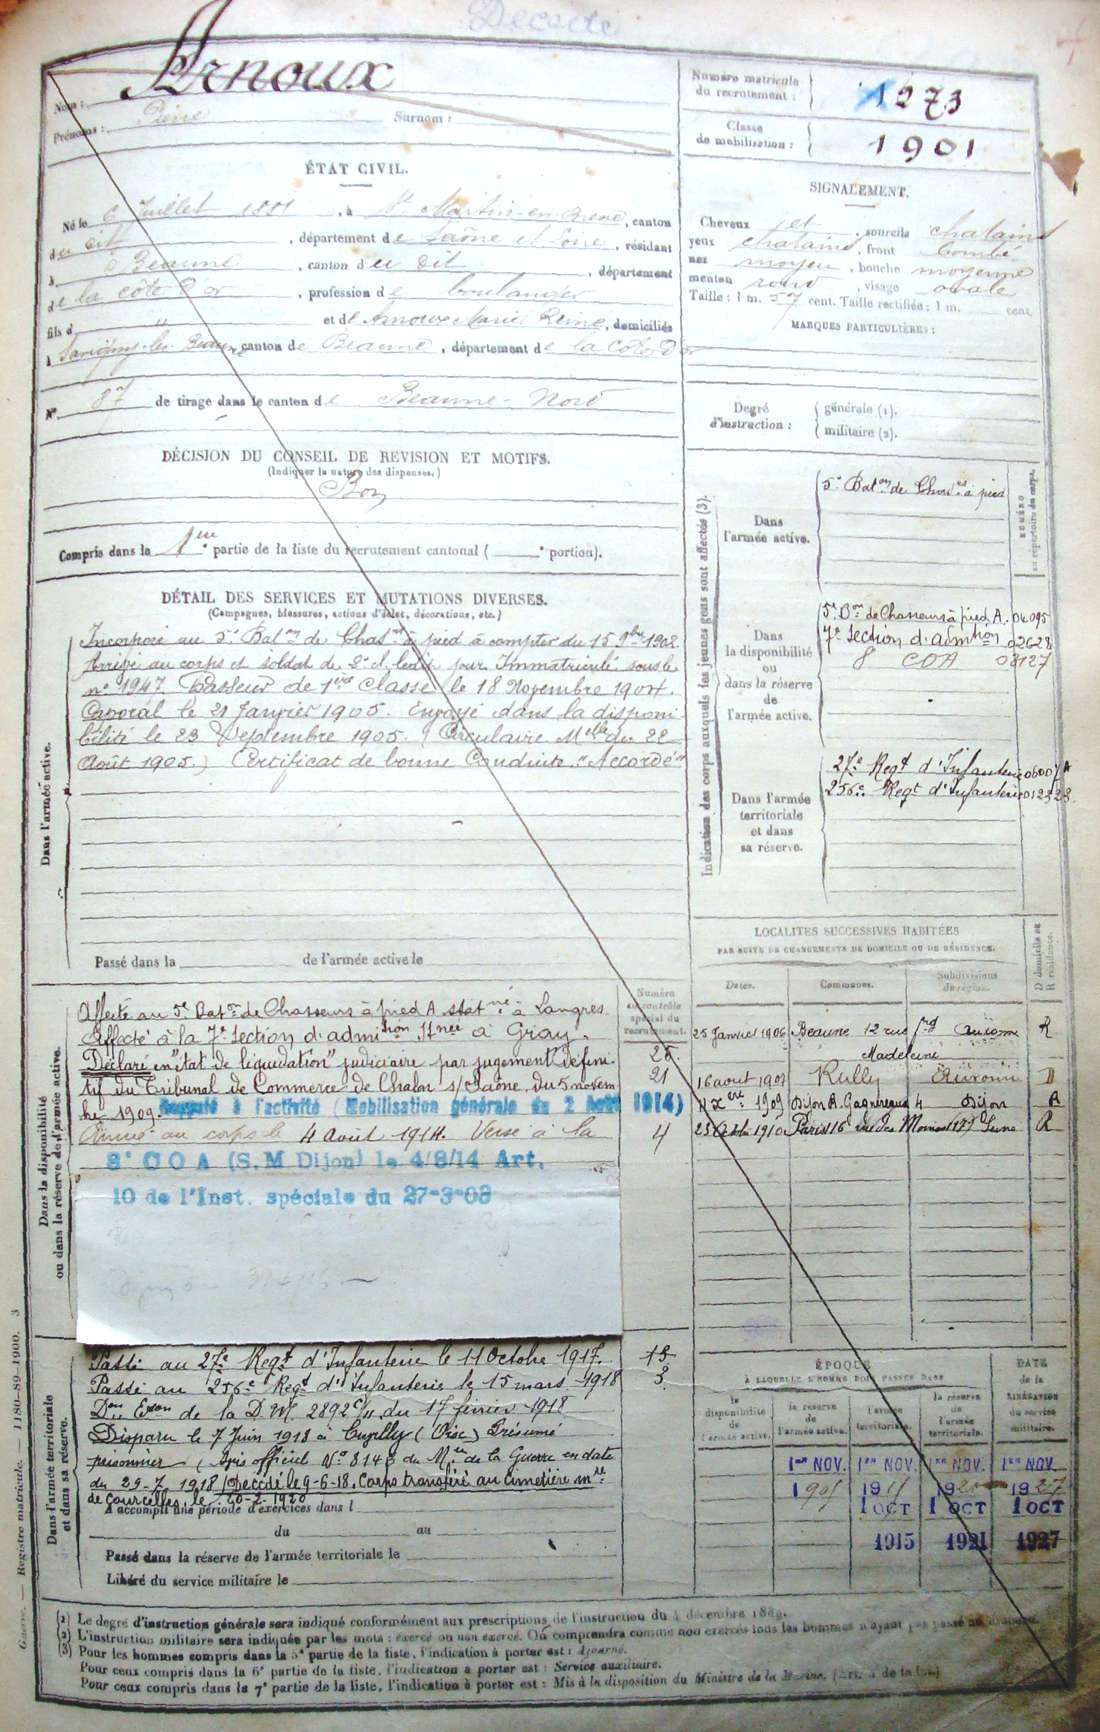 Décédé
Nom : Arnoux
Prénoms : Pierre Surnom :
Numéro matricule du recrutement : 1273
Classe de mobilisation : 1901
ÉTAT CIVIL.
Né le 6 Juillet 1881, à St Martin-en-Bresse, canton
du dit, département de Saône et Loire, résidant
à Beaune, canton du dit, département
de la côte d'or, profession de boulanger
fils d et de Arnoux Marie Reine, domiciliés
à Savigny-les-Beaune, canton de Beaune, département de la Côte d'or
N° 87 de tirage dans le canton de Beaune-Nord
SIGNALEMENT.
Cheveux et, sourcils chatains
yeux chatains, front bombé
nez moyen, bouche moyenne
menton rond, visage ovale
Taille : 1 m. 57 cent. Taille rectifiée : 1 m. cent.
MARQUES PARTICULIÈRES :
Degré d'instruction : générale (1).
militaire (2).
DÉCISION DU CONSEIL DE REVISION ET MOTIFS.
(Indiquer la nature des dispenses.)
Bon
Compris dans la 1ère partie de la liste du recrutement cantonal ( e portion).
DÉTAIL DES SERVICES ET MUTATIONS DIVERSES.
(Campagnes, blessures, actions d'éclat, décorations, etc.)
Dans l'armée active.
Incorporé au 5e Baton de Chasrs à pied à compter du 15 9bre 1902.
Arrivé au corps et soldat de 2e cl. ledit jour. Immatriculé sous le
n° 1947. Chasseur de 1ère classe le 18 Novembre 1904.
Caporal le 21 Janvier 1905. Envoyé dans la disponi
bilité le 23 Septembre 1905. (Circulaire Melle du 22
Août 1905.) Certificat de bonne Conduite "Accordé"
Passé dans la de l'armée active le
Indication des corps auxquels les jeunes gens sont affectés (3).
NUMÉRO au répertoire du corps.
Dans l'armée active.
5e Baton de Chasrs à pied
Dans la disponibilité ou dans la réserve de l'armée active.
5e Bon de Chasseurs à pied A. 04095
7e Section d'admtion 02628
8 COA 08127
Dans l'armée territoriale et dans sa réserve.
27e Regt d'Infanterie 06007 A
256e Regt d'Infanterie 012323
LOCALITÉS SUCCESSIVES HABITÉES
PAR SUITE DE CHANGEMENTS DE DOMICILE OU DE RÉSIDENCE.
Dates. Communes. Subdivisions de région. D domicile ou R résidence.
25 Janvier 1906 Beaune 12 rue fbg Madeleine Auxonne R
16 aout 1907 Rully Auxonne D
11 Xbre 1909 Dijon R. Gagnereaux 4 Dijon R
23 Octob 1910 Paris 16 Seine R
Dans la disponibilité ou dans la réserve de l'armée active.
Numéro au contrôle spécial du recrutement.
Affecté au 5e Baton de Chasseurs à pied A statné à Langres
Affecté à la 7e Section d'admintion Stnée à Gray.
Déclaré en "état de liquidation" judiciaire par jugement défini
tif du Tribunal de Commerce de Chalon s/Saône du 5 novem
bre 1909. Rappelé à l'activité (Mobilisation générale du 2 Août 1914)
Arrivé au corps le 4 Août 1914. Versé à la
8e COA (S.M Dijon) le 4/8/14 Art.
10 de l'Inst. spéciale du 27-3-08
21
4
Dans l'armée territoriale et dans sa réserve.
Passé au 27e Regt d'Infanterie le 11 Octobre 1917.
Passé au 256e Regt d'Infanterie le 15 mars 1918
Don Exon de la D.M. 2892 c/11 du 17 février 1918
Disparu le 7 Juin 1918 à Cuvilly (Oise) Présumé
prisonnier (Avis officiel N° du Mre de la Guerre en date
du 29-7-1918) Décédé le 9-6-18. Corps transféré au cimetière mre
de Courcelles, le 20-2-1920
A accompli une période d'exercices dans l
du au
Passé dans la réserve de l'armée territoriale le
Libéré du service militaire le
ÉPOQUE
À LAQUELLE L'HOMME DOIT PASSER DANS
DATE de la LIBÉRATION du service militaire.
la disponibilité de l'armée active. la réserve de l'armée active. l'armée territoriale. la réserve de l'armée territoriale.
1er NOV. 1er NOV. 1er NOV. 1er NOV.
1905 1911 1927
1 OCT 1 OCT 1 OCT
1915 1921 1927
(1) Le degré d'instruction générale sera indiqué conformément aux prescriptions de l'instruction du 4 décembre 1889.
(2) L'instruction militaire sera indiquée par les mots : exercé ou non exercé. On comprendra comme non exercés tous les hommes n'ayant pas passé au drapeau.
(3) Pour les hommes compris dans la 5e partie de la liste, l'indication à porter est : Ajourné.
Pour ceux compris dans la 6e partie de la liste, l'indication à porter est : Service auxiliaire.
Pour ceux compris dans la 7e partie de la liste, l'indication à porter est : Mis à la disposition du Ministre de la Marine. (Art. 4 de la loi.)
Guerre. — Registre matricule. — 1180-89-1900. 3